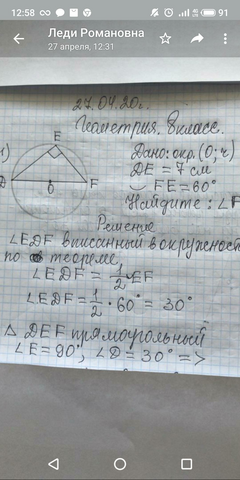 12:58
91
Леди Романовна
27 апреля, 12:31
27.04.20г.
Геометрия. 8 класс.
1)
E
D
O
F
Дано: окр.(O; r)
DE = 7 см
◡ FE = 60°
Найдите: ∠F
Решение
∠EDF вписанный в окружность
по теореме
∠EDF = 1/2 ◡EF
∠EDF = 1/2 · 60° = 30°
△ DEF прямоугольный
∠E = 90°, ∠D = 30° =>